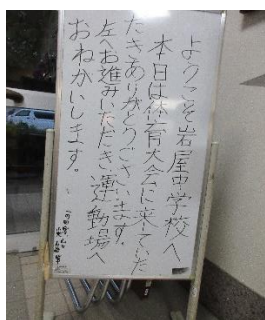 ようこそ岩屋中学校へ
本日は体育大会に来ていた
だきありがとうございます。
左へお進みいただき、運動場へ
おねがいします。